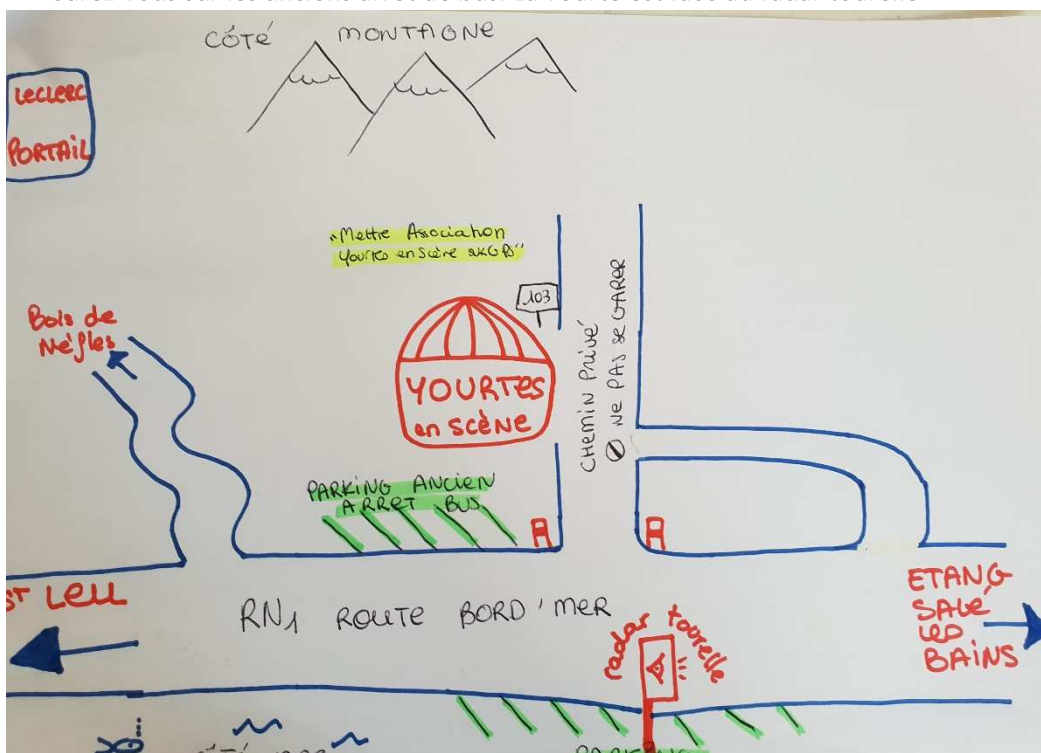 CÔTÉ MONTAGNE
LECLERC
PORTAIL
"Mettre Association
Yourtes en Scène sur GPS"
103
Bois de
Nèfles
YOURTES
en SCÈNE
CHEMIN PRIVÉ
NE PAS SE GARER
PARKING ANCIEN
ARRET BUS
ST LEU
RN1 ROUTE BORD'MER
radar tourelle
ETANG
SALÉ
LES
BAINS
PARKING